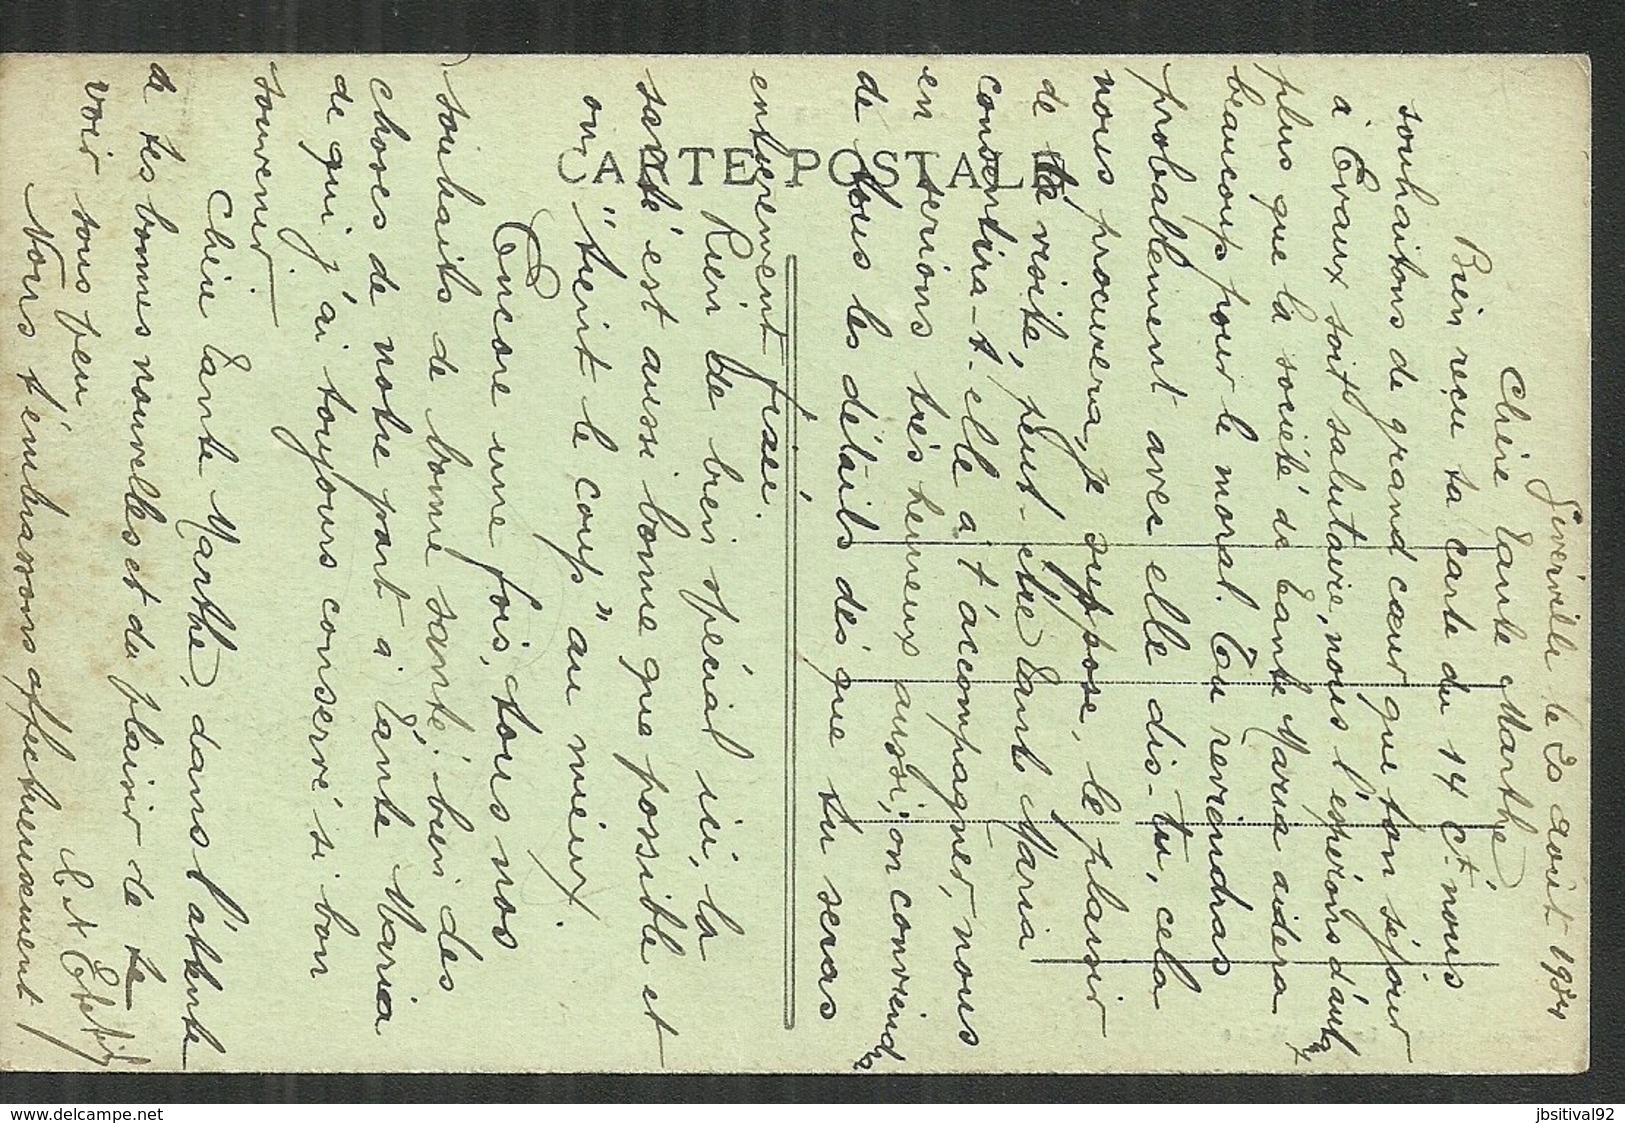 le 20 août 1934
Chère Tante Marthe
Bien reçu ta carte du 14 ct. nous
souhaitons de grand cœur que ton séjour
à Evaux soit salutaire, nous l'espérons d'autt
plus que la société de Tante Maria aidera
beaucoup pour le moral. Tu reviendras
probablement avec elle dis-tu, cela
nous procurera, je suppose, le plaisir
de ta visite, peut-être Tante Maria
consentira-t-elle à t'accompagner, nous
en serions très heureux aussi; on conviendra
de tous les détails dès que tu seras
entièrement fixée.
Rien de bien spécial ici, la
santé est aussi bonne que possible et
on "tient le coup" au mieux.
Encore une fois, tous nos
souhaits de bonne santé; bien des
choses de notre part à Tante Maria
de qui j'ai toujours conservé si bon
souvenir.
Chère Tante Marthe, dans l'attente
de tes bonnes nouvelles et du plaisir de te
voir sous peu
Nous t'embrassons affectueusement
CARTE POSTALE
www.delcampe.net
jbsitival92